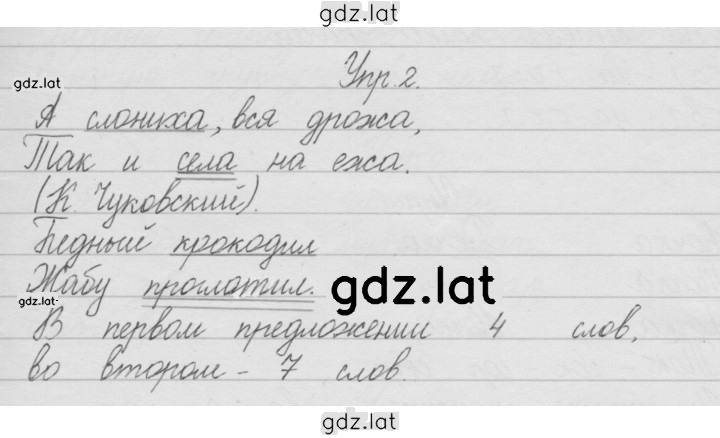 gdz.lat
gdz.lat
Упр. 2.
А слониха, вся дрожа,
Так и села на ежа.
(К. Чуковский).
Бедный крокодил
Жабу проглотил.
gdz.lat
gdz.lat
В первом предложении 4 слов,
во втором - 7 слов.
gdz.lat